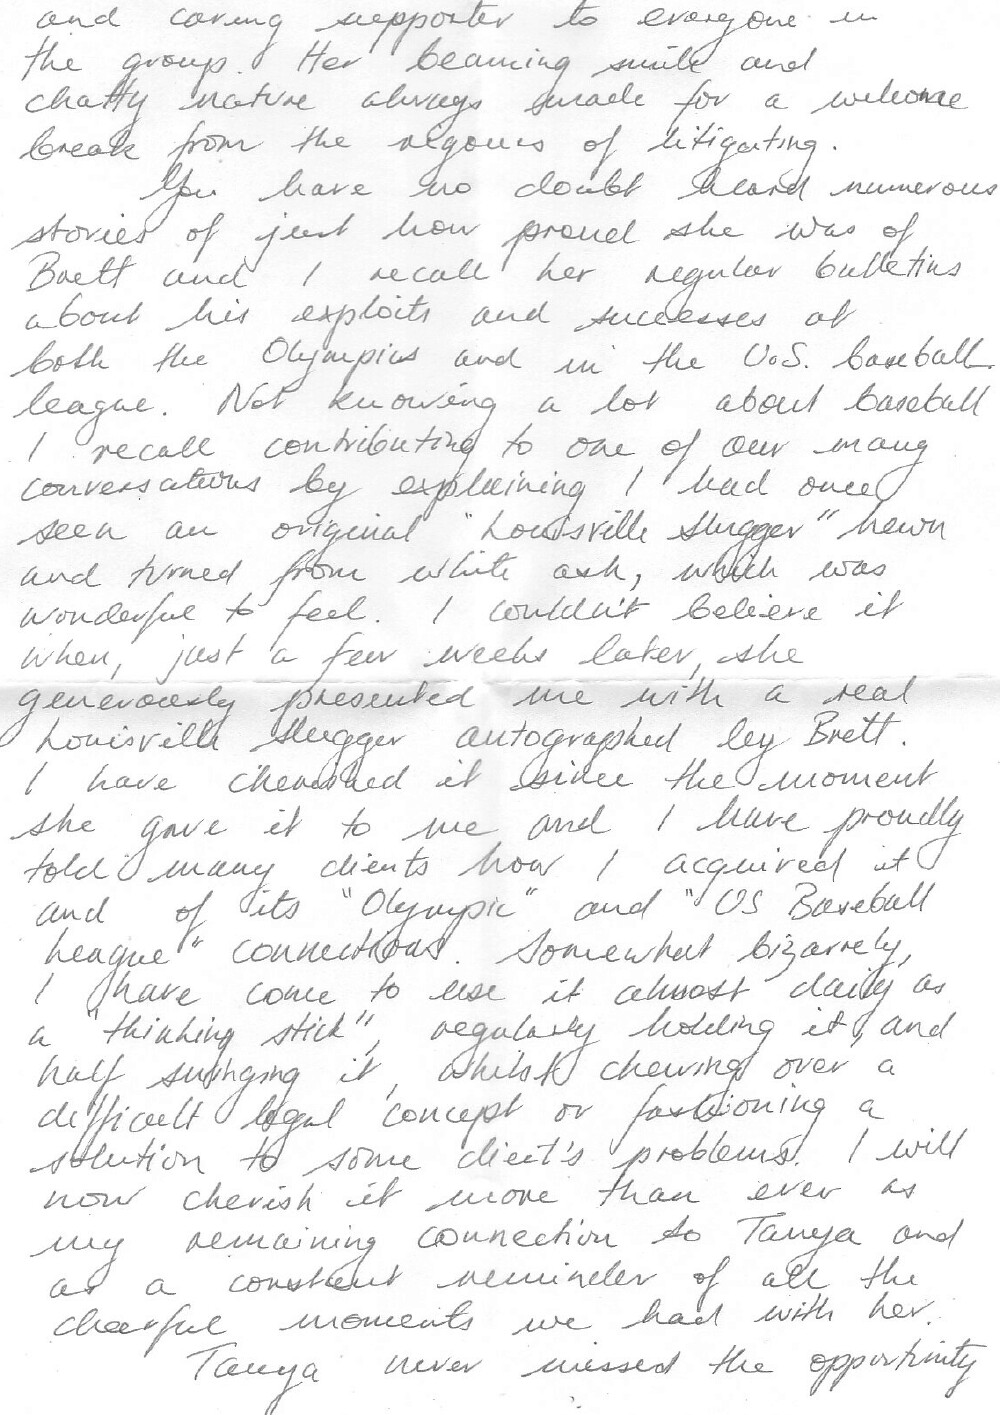 and caring supporter to everyone in
the group. Her beaming smile and
chatty nature always made for a welcome
break from the rigours of litigating.
You have no doubt heard numerous
stories of just how proud she was of
Brett and I recall her regular bulletins
about his exploits and successes at
both the Olympics and in the U.S. baseball
league. Not knowing a lot about baseball
I recall contributing to one of our many
conversations by explaining I had once
seen an original "Louisville Slugger" hewn
and turned from white ash, which was
wonderful to feel. I couldn't believe it
when, just a few weeks later, she
generously presented me with a real
Louisville Slugger autographed by Brett.
I have cherished it since the moment
she gave it to me and I have proudly
told many clients how I acquired it
and of its "Olympic" and "US Baseball
League" connections. Somewhat bizarrely,
I have come to use it almost daily as
a "thinking stick", regularly holding it, and
half swinging it, whilst chewing over a
difficult legal concept or fashioning a
solution to some client's problems. I will
now cherish it more than ever as
my remaining connection to Tanya and
as a constant reminder of all the
cheerful moments we had with her.
Tanya never missed the opportunity